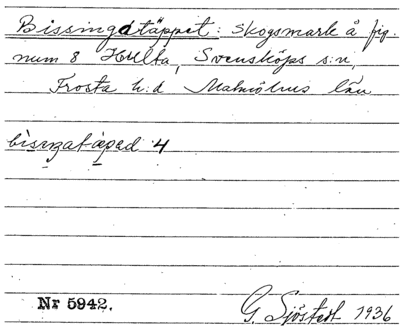 Bissingatäppet: Skogsmark å fig.
num 8 Hulta, Svensköps s:n,
Frosta h:d Malmöhus län
bisiŋatæpəd 4
Nr 5942.
G. Sjöstedt 1936